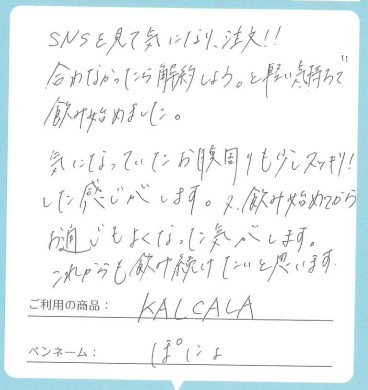 SNSを見て気になり、注文!!
合わなかったら解約しよう。と軽い気持ちで
飲み始めました。
気になっていたお腹周りも少しスッキリ!
した感じがします。又、飲み始めてから
お通じもよくなった気がします。
これからも飲み続けたいと思います.
ご利用の商品： KALCALA
ペンネーム： ぽにょ